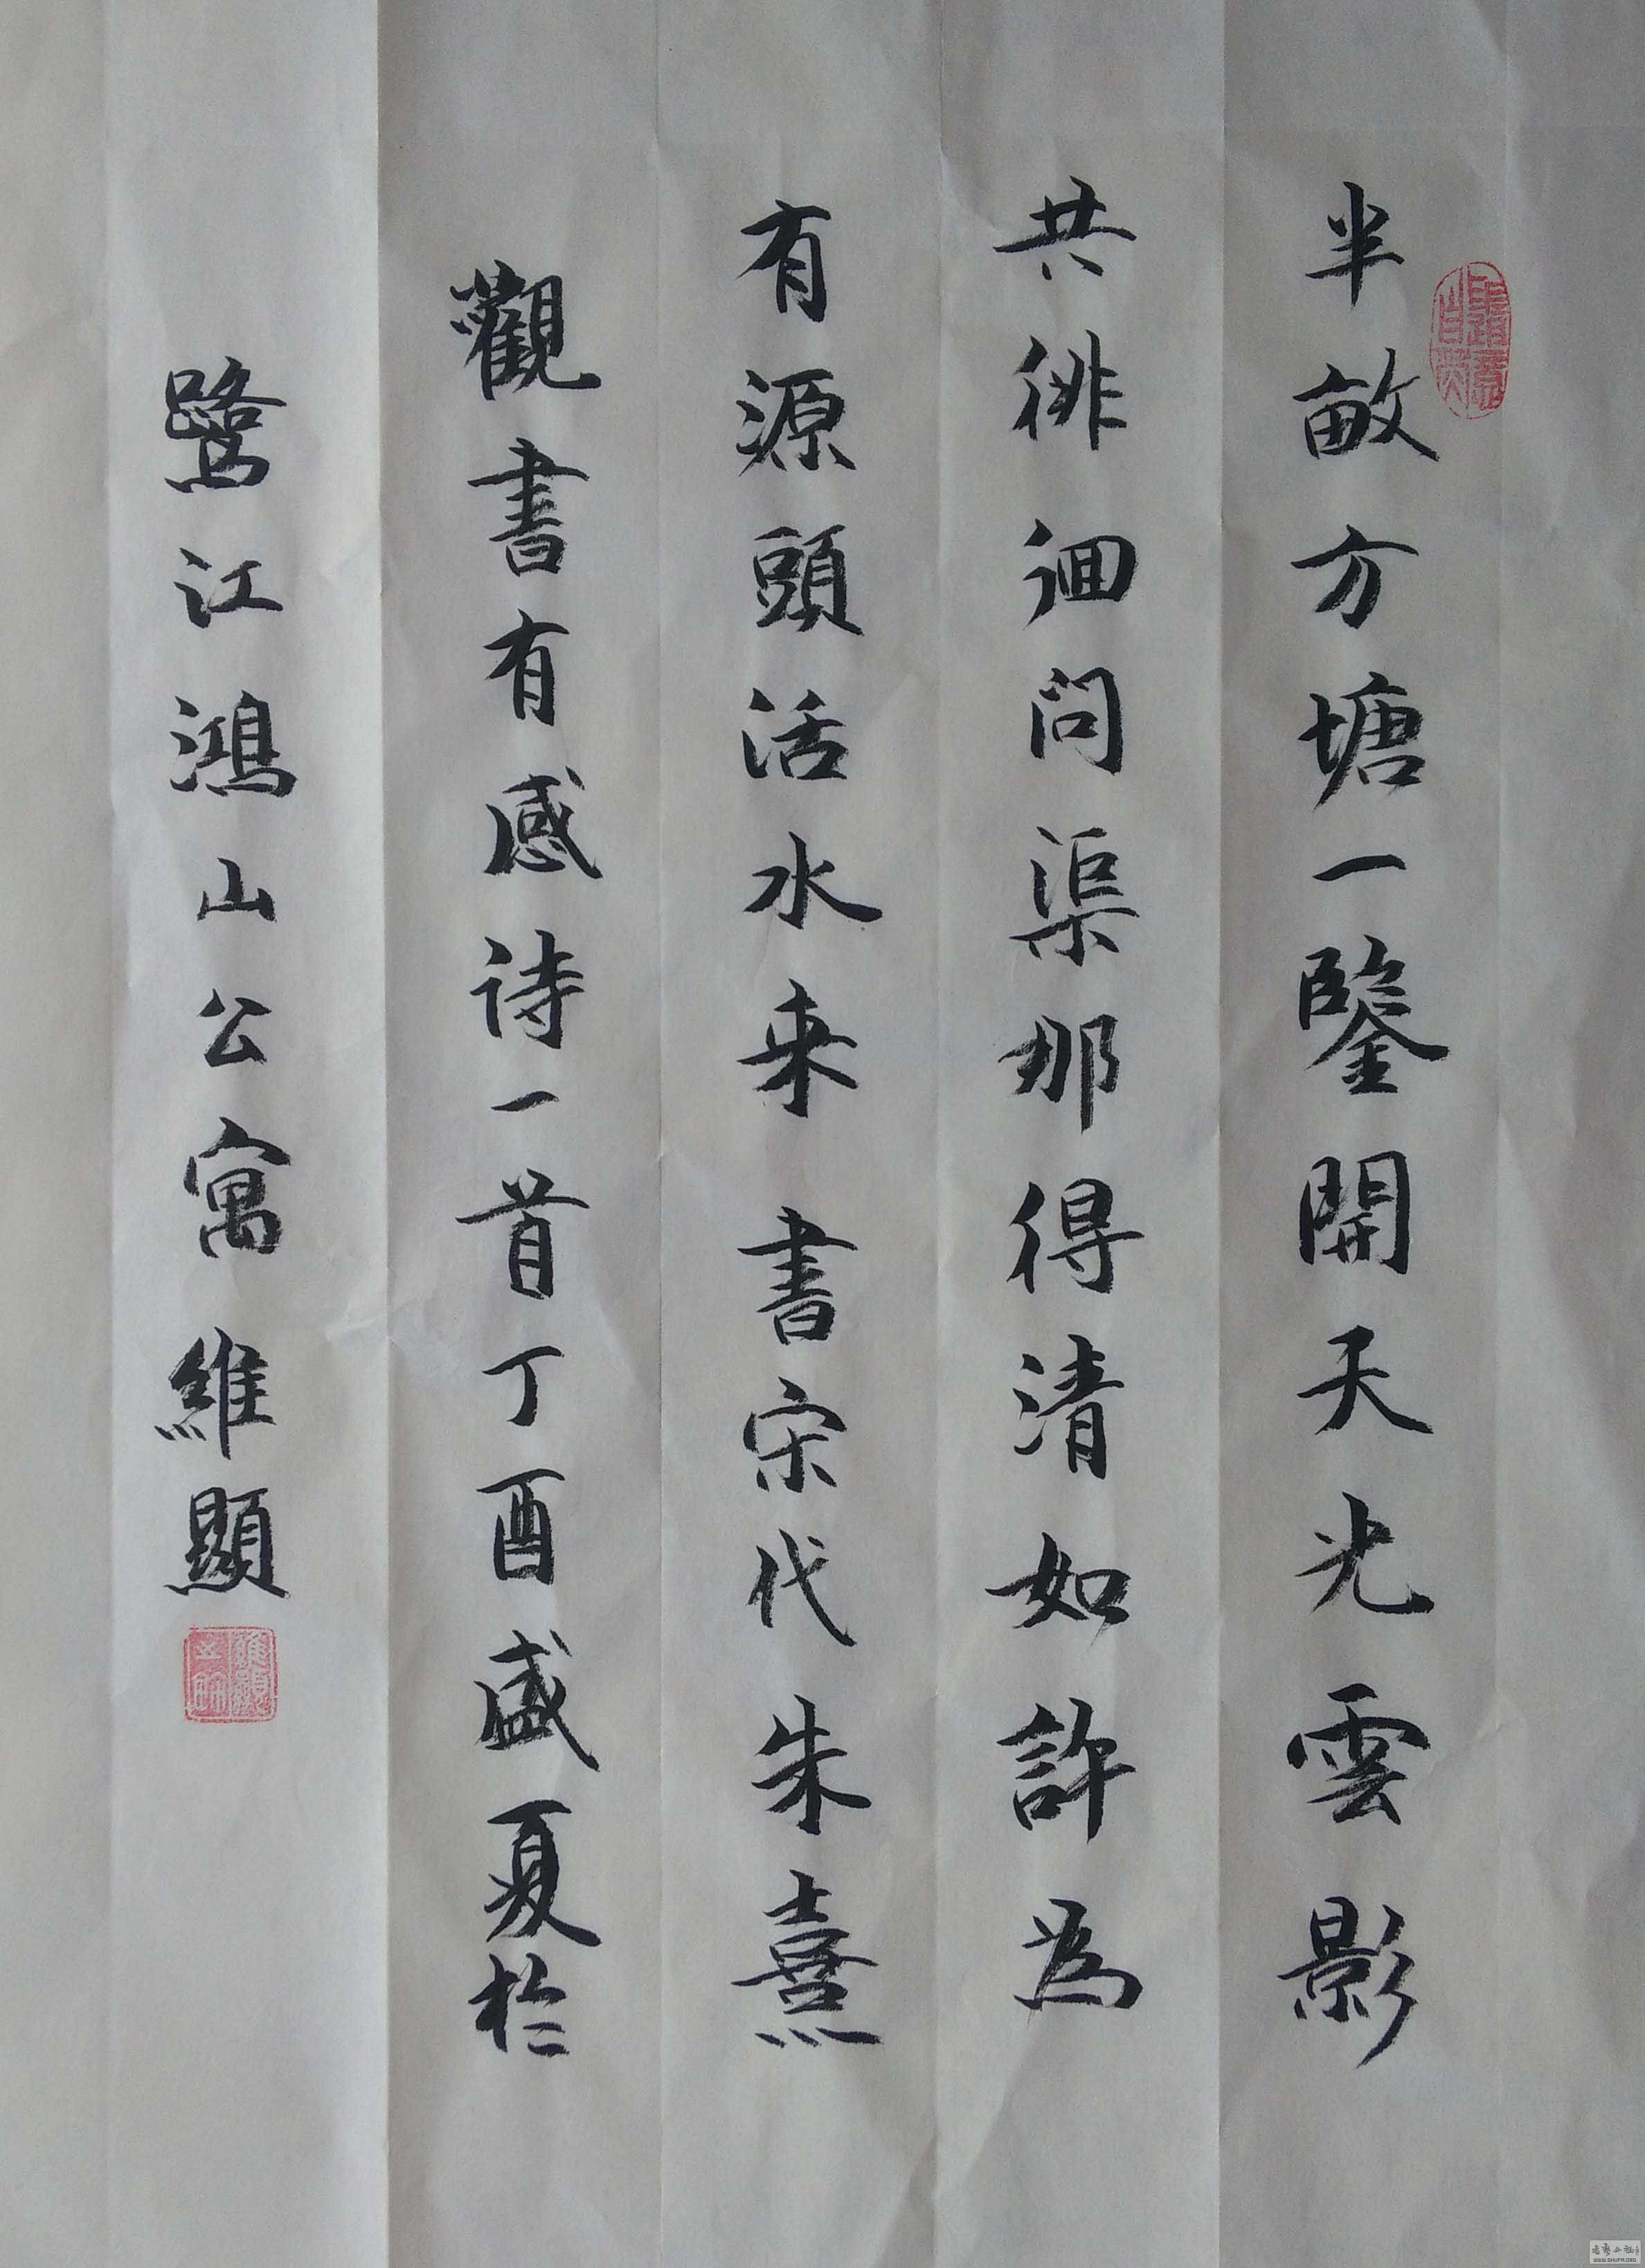 半畝方塘一鑒開天光雲影
共徘徊問渠那得清如許為
有源頭活水来 書宋代朱熹
觀書有感诗一首丁酉盛夏於
鷺江鴻山公寓 維顯